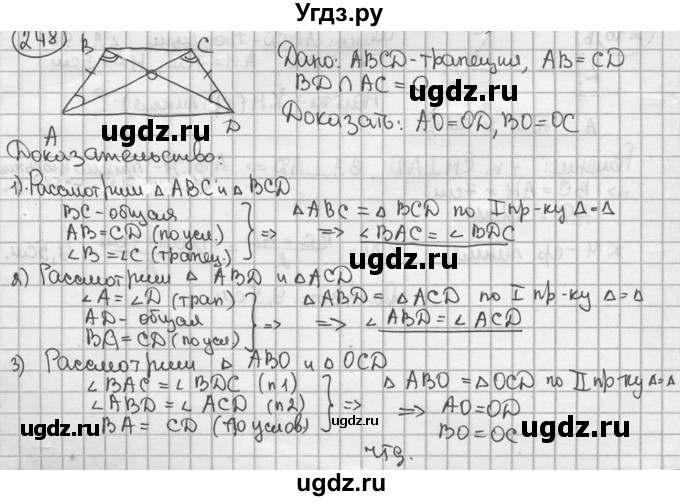 Угдз.ру
248
B C
A D
Дано: ABCD-трапеция, AB=CD
BD∩AC=O
Доказать: AO=OD, BO=OC
ugdz.ru ugdz.ru
Доказательство:
1) Рассмотрим △ABC и △BCD
BC-общая
AB=CD (по усл.)
∠B=∠C (трапец.)
=> △ABC=△BCD по I пр-ку △=△
=> ∠BAC=∠BDC
ugdz.ru ugdz.ru
2) Рассмотрим △ABD и △ACD
∠A=∠D (трап)
AD-общая
BA=CD (по усл)
=> △ABD=△ACD по I пр-ку △=△
=> ∠ABD=∠ACD
ugdz.ru ugdz.ru
3) Рассмотрим △ABO и △OCD
∠BAC=∠BDC (п1)
∠ABD=∠ACD (п2)
BA=CD (по услов)
=> △ABO=△OCD по II пр-ку △=△
=> AO=OD
BO=OC
чтд.
ugdz.ru ugdz.ru